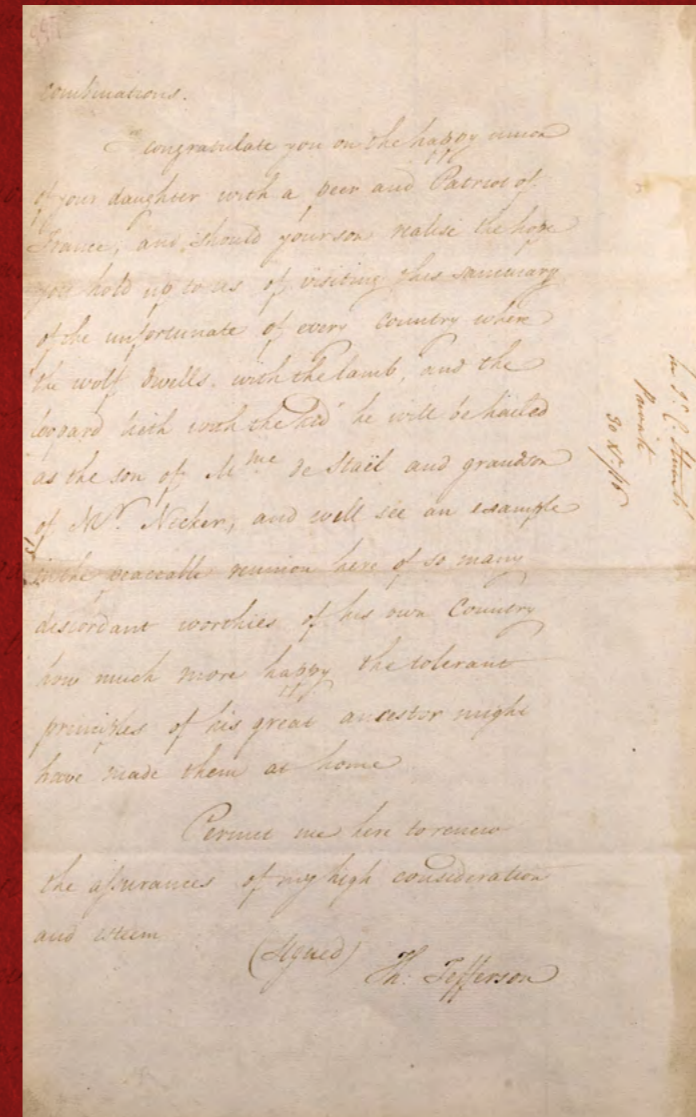 combinations.
I congratulate you on the happy union
of your daughter with a peer and Patriot of
France, and, should your son realise the hope
you hold up to us of visiting this sanctuary
of the unfortunate of every Country where
the wolf dwells with the lamb, and the
leopard lieth with the kid" he will be hailed
as the son of Mme de Staël and grandson
of Mr. Necker, and will see an example
in the peaceable reunion here of so many
discordant worthies of his own Country
how much more happy the tolerant
principles of his great ancestor might
have made them at home
Permit me here to renew
the assurances of my high consideration
and esteem
(signed) Th: Jefferson
in Sr. C. Stuart's
Private